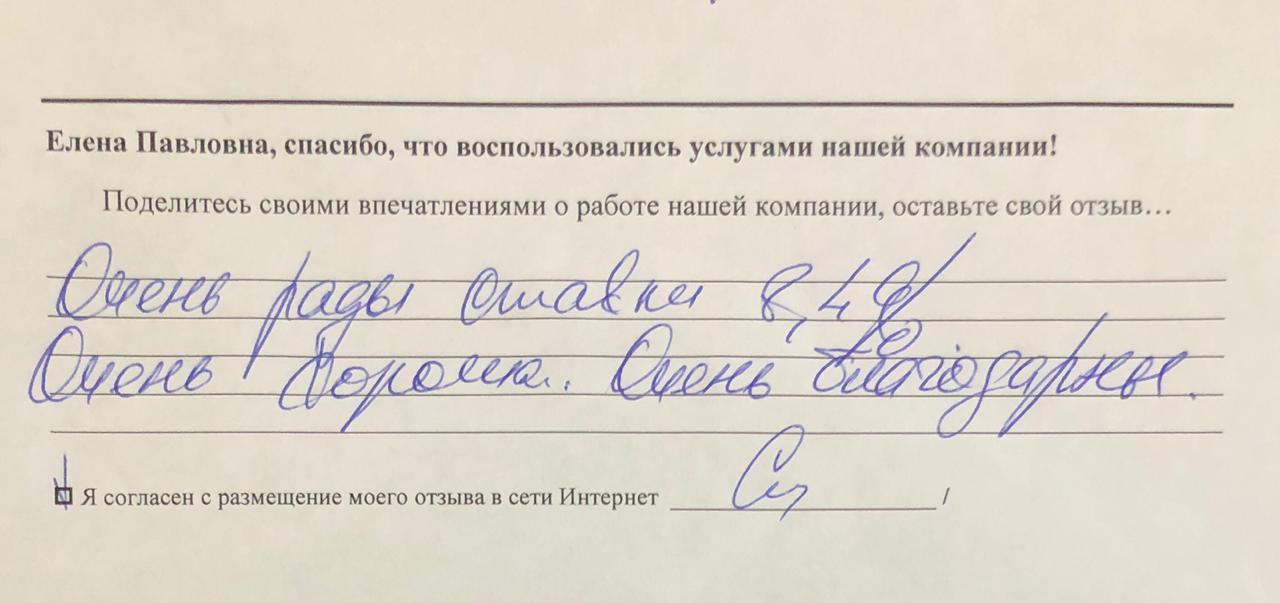 Елена Павловна, спасибо, что воспользовались услугами нашей компании!
Поделитесь своими впечатлениями о работе нашей компании, оставьте свой отзыв…
Очень рады ставки 8,4%
Очень хороша. Очень благодарны.
Я согласен с размещение моего отзыва в сети Интернет /